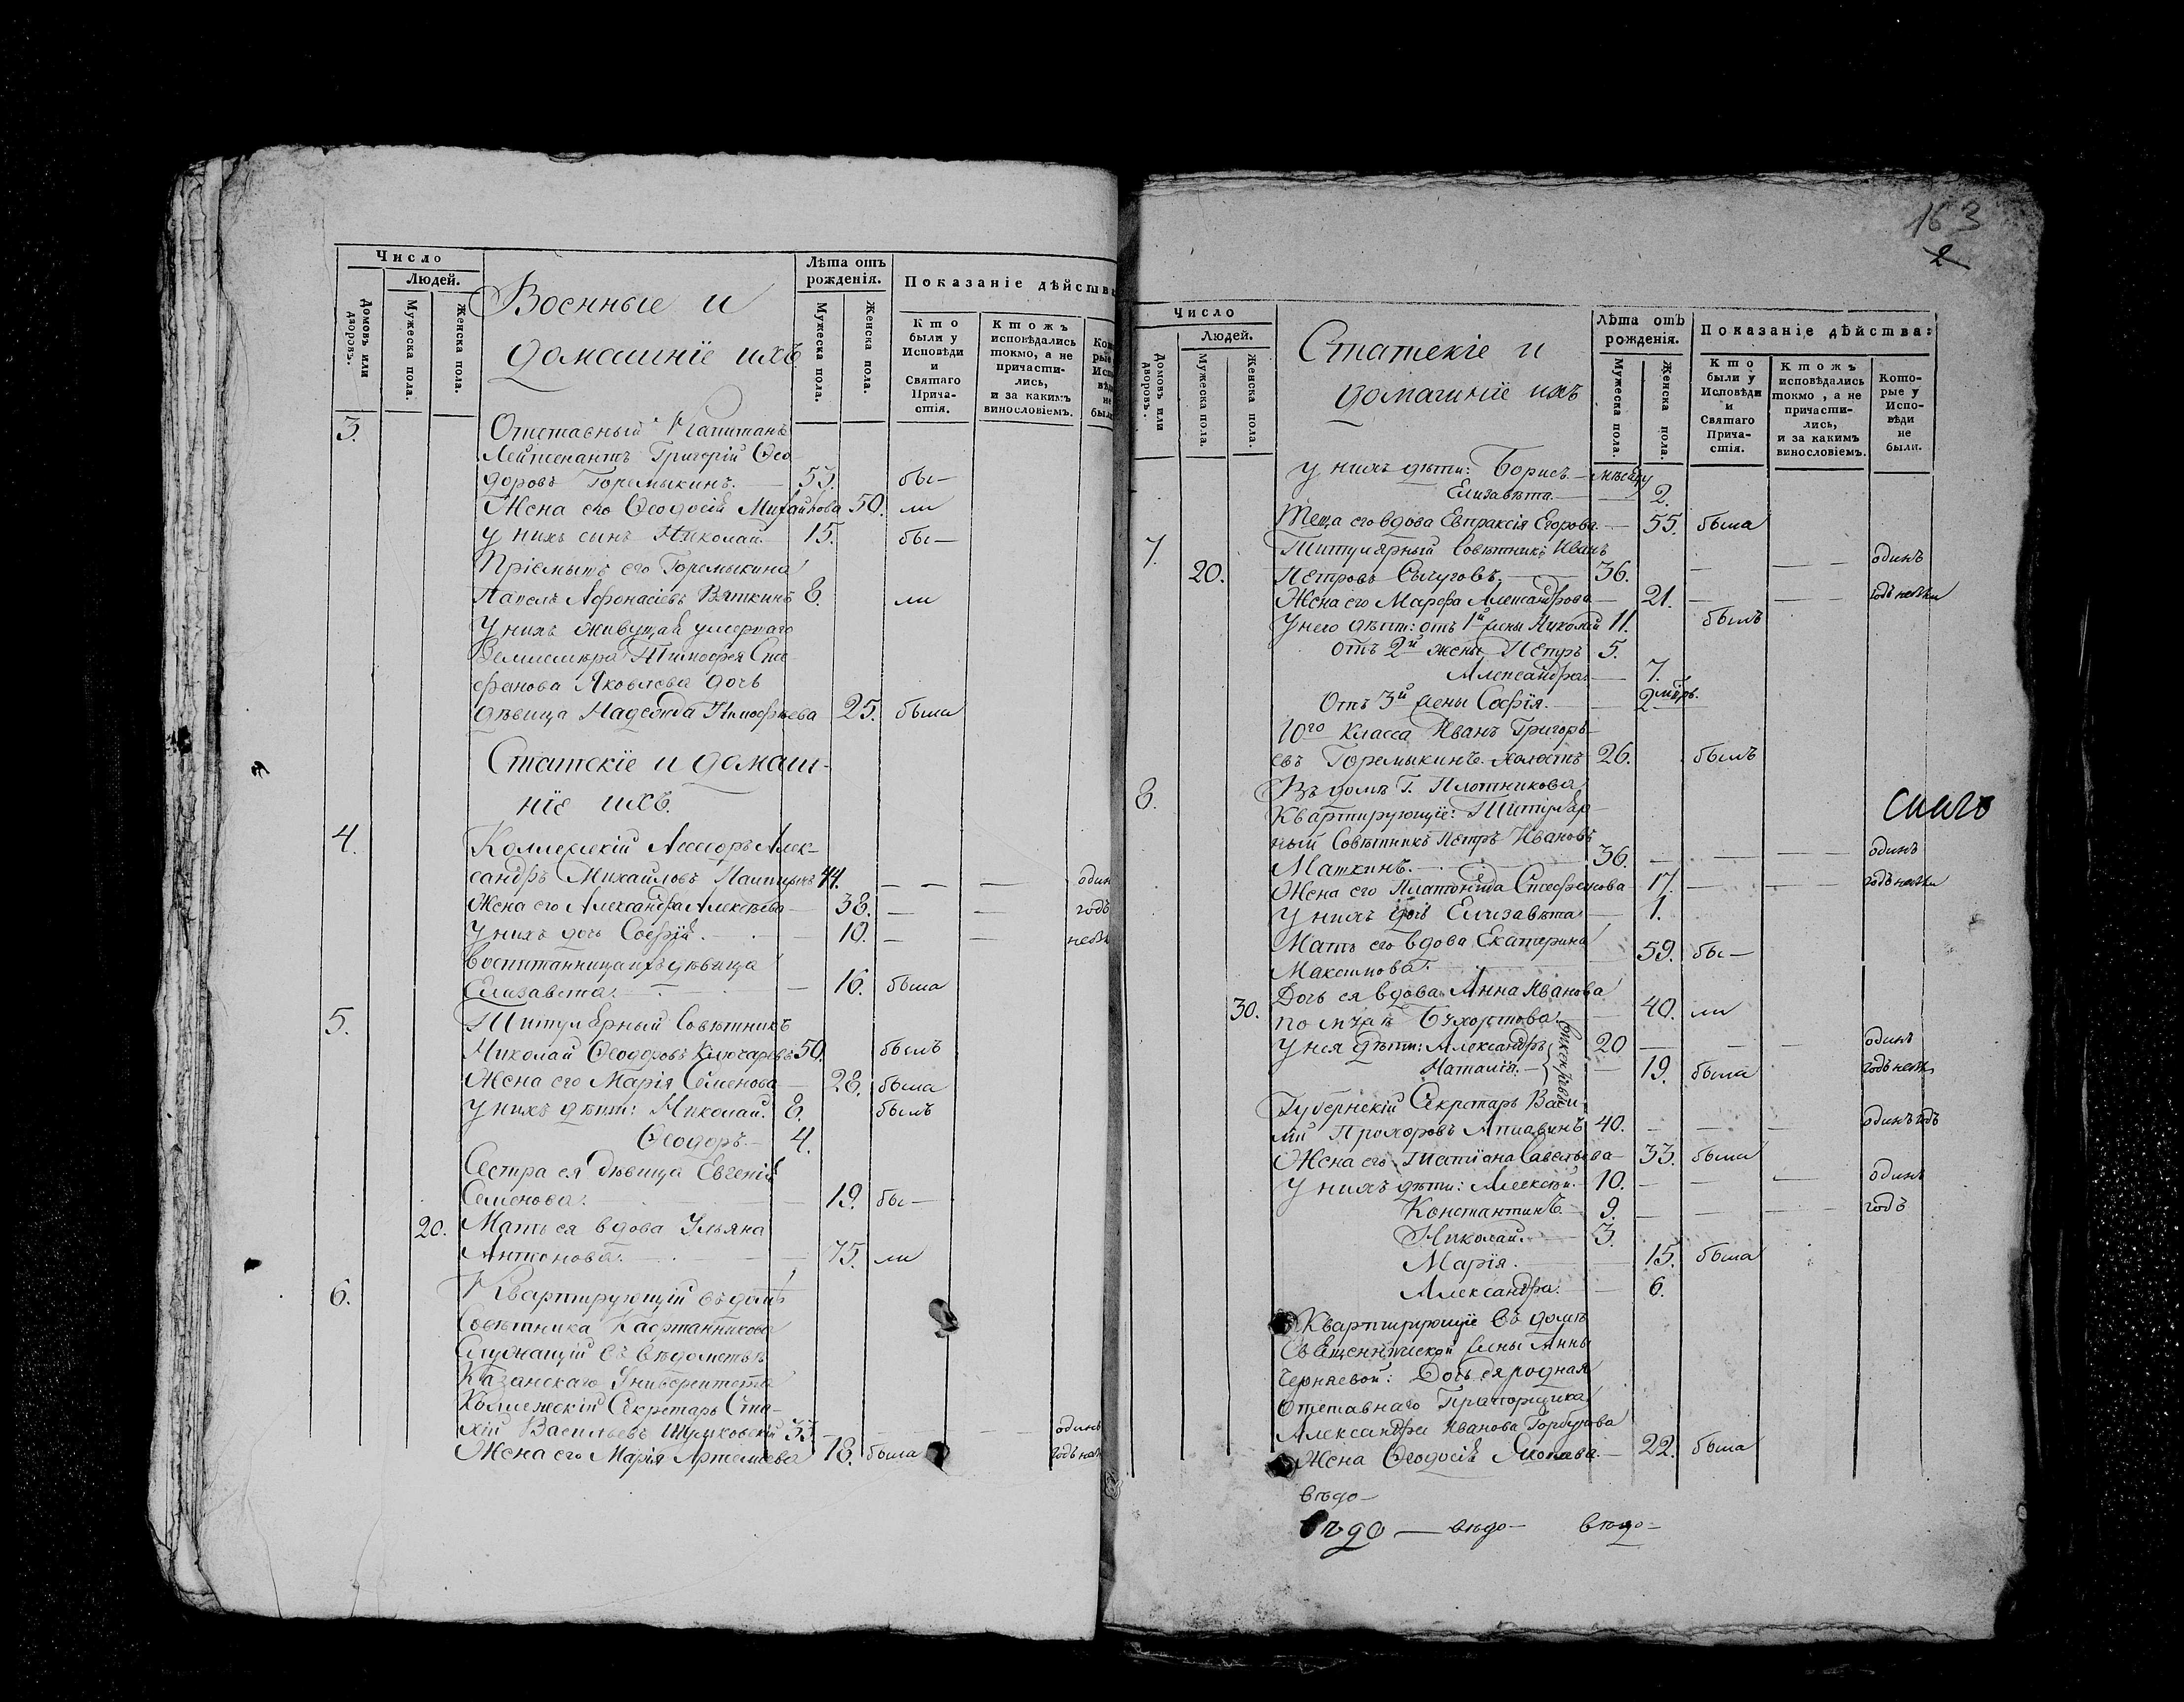 Число
Людей.
Домовъ или дворовъ.
Мужеска пола.
Женска пола.
Военные и
домашніе ихъ
Лѣта отъ рожденія.
Мужеска пола.
Женска пола.
Показаніе дѣйства
Кто были у Исповѣди и Святаго Причастія.
Ктожъ исповѣдались токмо, а не причастились, и за какимъ винословіемъ.
3. Отставный Капитанъ
Лейтенантъ Григорій Ѳео
доровъ Горемыкинъ. — 53. бы—
Жена его Ѳеодосія Михайлова 50. ли
у нихъ сынъ Николай — 15. бы—
Пріемышъ его Горемыкина
Павелъ Афонасіевъ Вяткинъ 8. ли
У нихъ живущая умершаго
Землемѣра Тимофея Сте
фанова Яковлева дочь
дѣвица Надежда Тимофѣева 25. была
Статскіе и домаш-
ніе ихъ.
4. Коллежскій Асессоръ Алек-
сандръ Михайловъ 44. — — — один
Жена его Александра Алексѣева — 38. — — годъ
У нихъ дочь Софія. — 10. — —
воспитанница ихъ дѣвица
Елизавета. — 16. была
5. Титулярный Совѣтникъ
Николай Ѳеодоровъ Ключаревъ 50. былъ
Жена его Марія Семенова — 28. была
У нихъ дѣти: Николай. 8. былъ
Ѳеодоръ. — 4.
Сестра ея дѣвица Евгенія
Семенова. — 19. бы—
20. Мать ея вдова Ульяна
Антонова. — 75. ли
6. Квартирующій въ домѣ
Совѣтника Кафтанникова
Служащій въ вѣдомствѣ
Казанскаго Университета
Коллежскій Секретарь Ста-
хій Васильевъ 33. — — одинъ
Жена его Марія Артемьева 18. была
163
2
Число
Людей.
Домовъ или дворовъ.
Мужеска пола.
Женска пола.
Статскіе и
домашніе ихъ
Лѣта отъ рожденія.
Мужеска пола.
Женска пола.
Показаніе дѣйства:
Кто были у Исповѣди и Святаго Причастія.
Ктожъ исповѣдались токмо, а не причастились, и за какимъ винословіемъ.
Которые у Исповѣди не были.
у нихъ дѣти: Борисъ —
Елизавета. — 2.
Теща его вдова Евпраксія Егорова. — 55. была
7. Титулярный Совѣтникъ Иванъ
20. Петровъ — 36. — — одинъ
Жена его Марфа Александрова — 21. — —
У него дѣти: отъ 1й жены Николай 11. былъ
отъ 2й жены Петръ 5.
Александра — 7.
Отъ 3й жены Софія. — 2
10го Класса Иванъ Григорь-
евъ Горемыкинъ холостъ 26. былъ
8. Въ домѣ Г. Плотникова
Квартирующіе: Титуляр
ный Совѣтникъ Петръ Ивановъ
Маткинъ. — 36. — — — одинъ
Жена его Платонида Стефанова — 17. — —
У нихъ дочь Елизавета — 1.
Мать его вдова Екатерина
Максимова. — 59. бы—
30. Дочь ея вдова Анна Иванова
— 40. ли
У нея дѣти: Александръ 20 — — — одинъ
Наталія. — 19. была
Губернскій Секретарь Васи-
лій Прохоровъ 40. — — — одинъ годъ
Жена его Татіана Савельева — 33. была
У нихъ дѣти: Алексѣй. — 10. — — — одинъ
Константинъ. — 9. — — — годъ
Николай. — 3.
Марія. — 15. была
Александра. — 6.
Квартирующіе въ домѣ
Священнической жены Анны
Черняевой: Дочь ея родная
Отставнаго Прапорщика
Александра Иванова Горбунова
Жена Ѳеодосія — 22. была
вѣдо—
вѣдо — вѣдо— вѣдо—